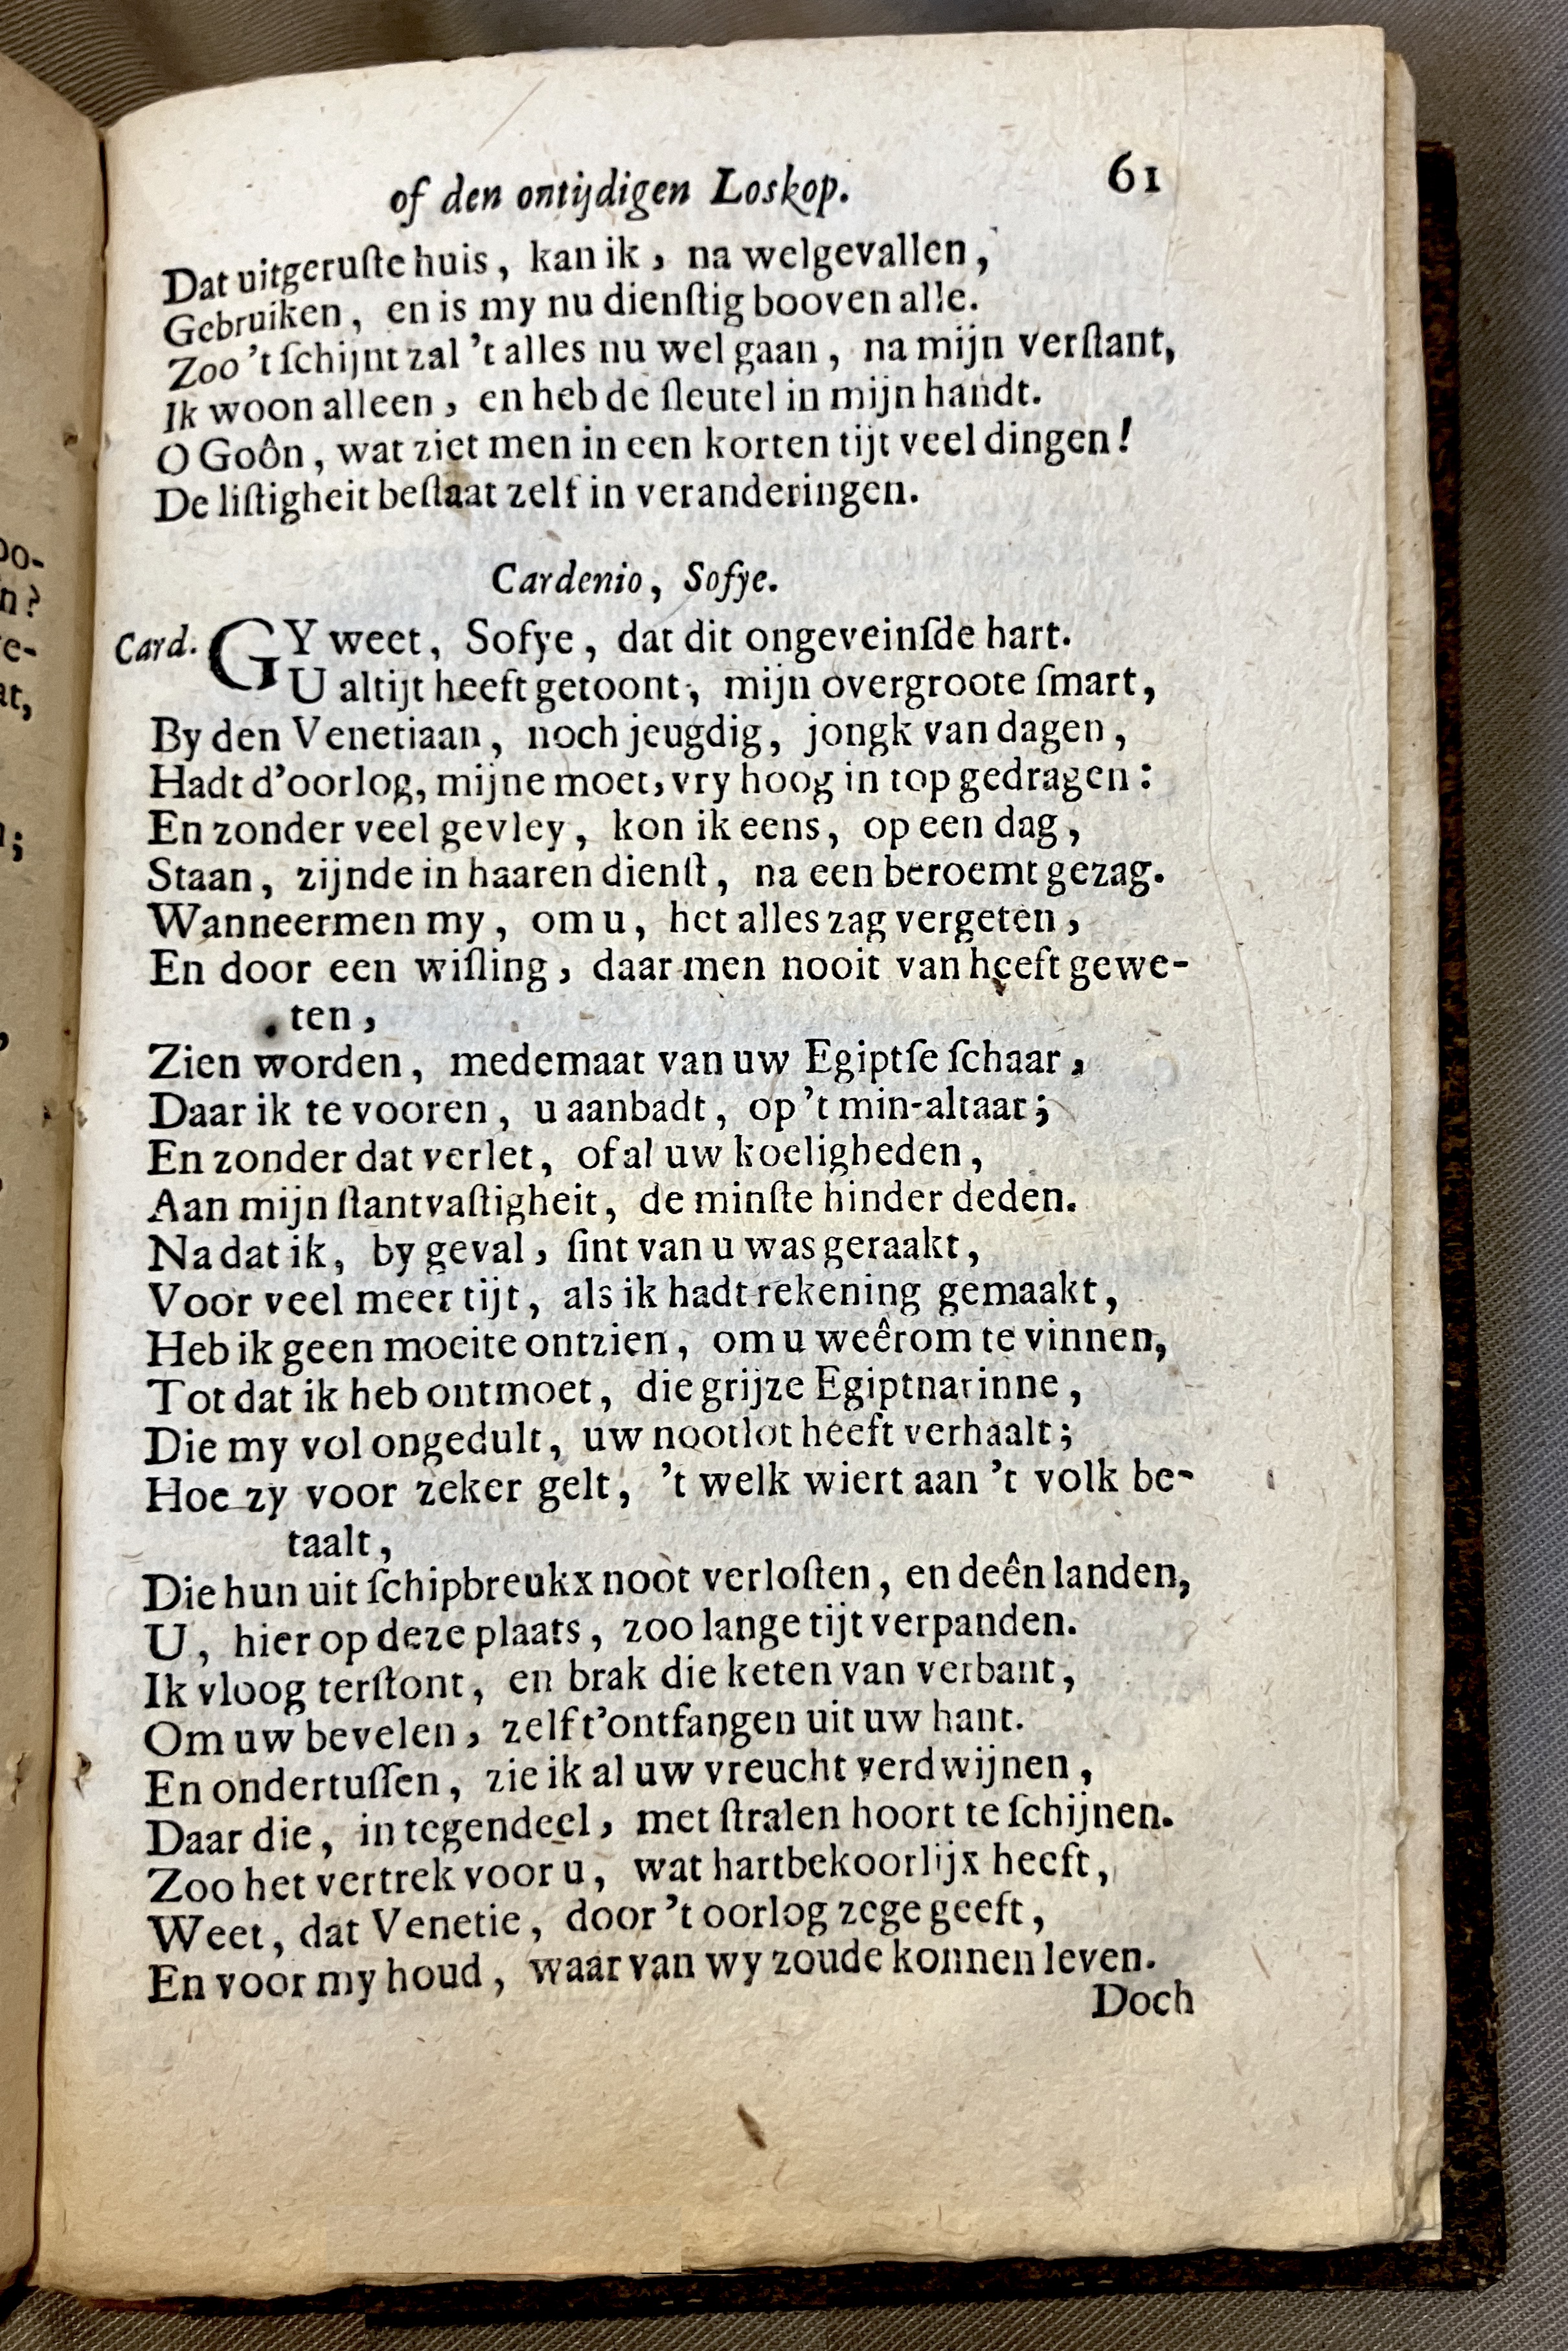 of den ontijdigen Loskop. 61
Dat uitgeruſte huis, kan ik, na welgevallen,
Gebruiken, en is my nu dienſtig booven alle.
Zoo 't ſchijnt zal 't alles nu wel gaan, na mijn verſtant,
Ik woon alleen, en heb de ſleutel in mijn handt.
O Goôn, wat ziet men in een korten tijt veel dingen!
De liſtigheit beſtaat zelf in veranderingen.
Cardenio, Sofye.
Card. GY weet, Sofye, dat dit ongeveinſde hart.
U altijt heeft getoont, mijn overgroote ſmart,
By den Venetiaan, noch jeugdig, jongk van dagen,
Hadt d'oorlog, mijne moet, vry hoog in top gedragen:
En zonder veel gevley, kon ik eens, op een dag,
Staan, zijnde in haaren dienſt, na een beroemt gezag.
Wanneermen my, om u, het alles zag vergeten,
En door een wiſling, daar men nooit van heeft gewe-
ten,
Zien worden, medemaat van uw Egiptſe ſchaar,
Daar ik te vooren, u aanbadt, op 't min-altaar;
En zonder dat verlet, of al uw koeligheden,
Aan mijn ſtantvaſtigheit, de minſte hinder deden.
Na dat ik, by geval, ſint van u was geraakt,
Voor veel meer tijt, als ik hadt rekening gemaakt,
Heb ik geen moeite ontzien, om u weêrom te vinnen,
Tot dat ik heb ontmoet, die grijze Egiptnarinne,
Die my vol ongedult, uw nootlot heeft verhaalt;
Hoe zy voor zeker gelt, 't welk wiert aan 't volk be-
taalt,
Die hun uit ſchipbreukx noot verloſten, en deên landen,
U, hier op deze plaats, zoo lange tijt verpanden.
Ik vloog terſtont, en brak die keten van verbant,
Om uw bevelen, zelf t'ontfangen uit uw hant.
En ondertuſſen, zie ik al uw vreucht verdwijnen,
Daar die, in tegendeel, met ſtralen hoort te ſchijnen.
Zoo het vertrek voor u, wat hartbekoorlijx heeft,
Weet, dat Venetie, door 't oorlog zege geeft,
En voor my houd, waar van wy zoude konnen leven.
Doch